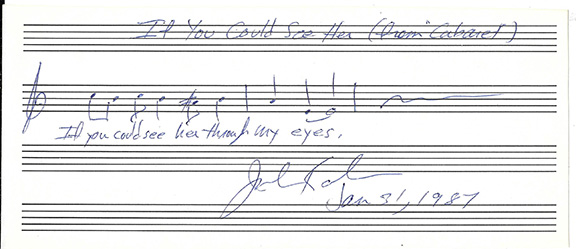 If You Could See Her (from "Cabaret")
If you could see her through my eyes.
John Kander
Jan 31, 1987